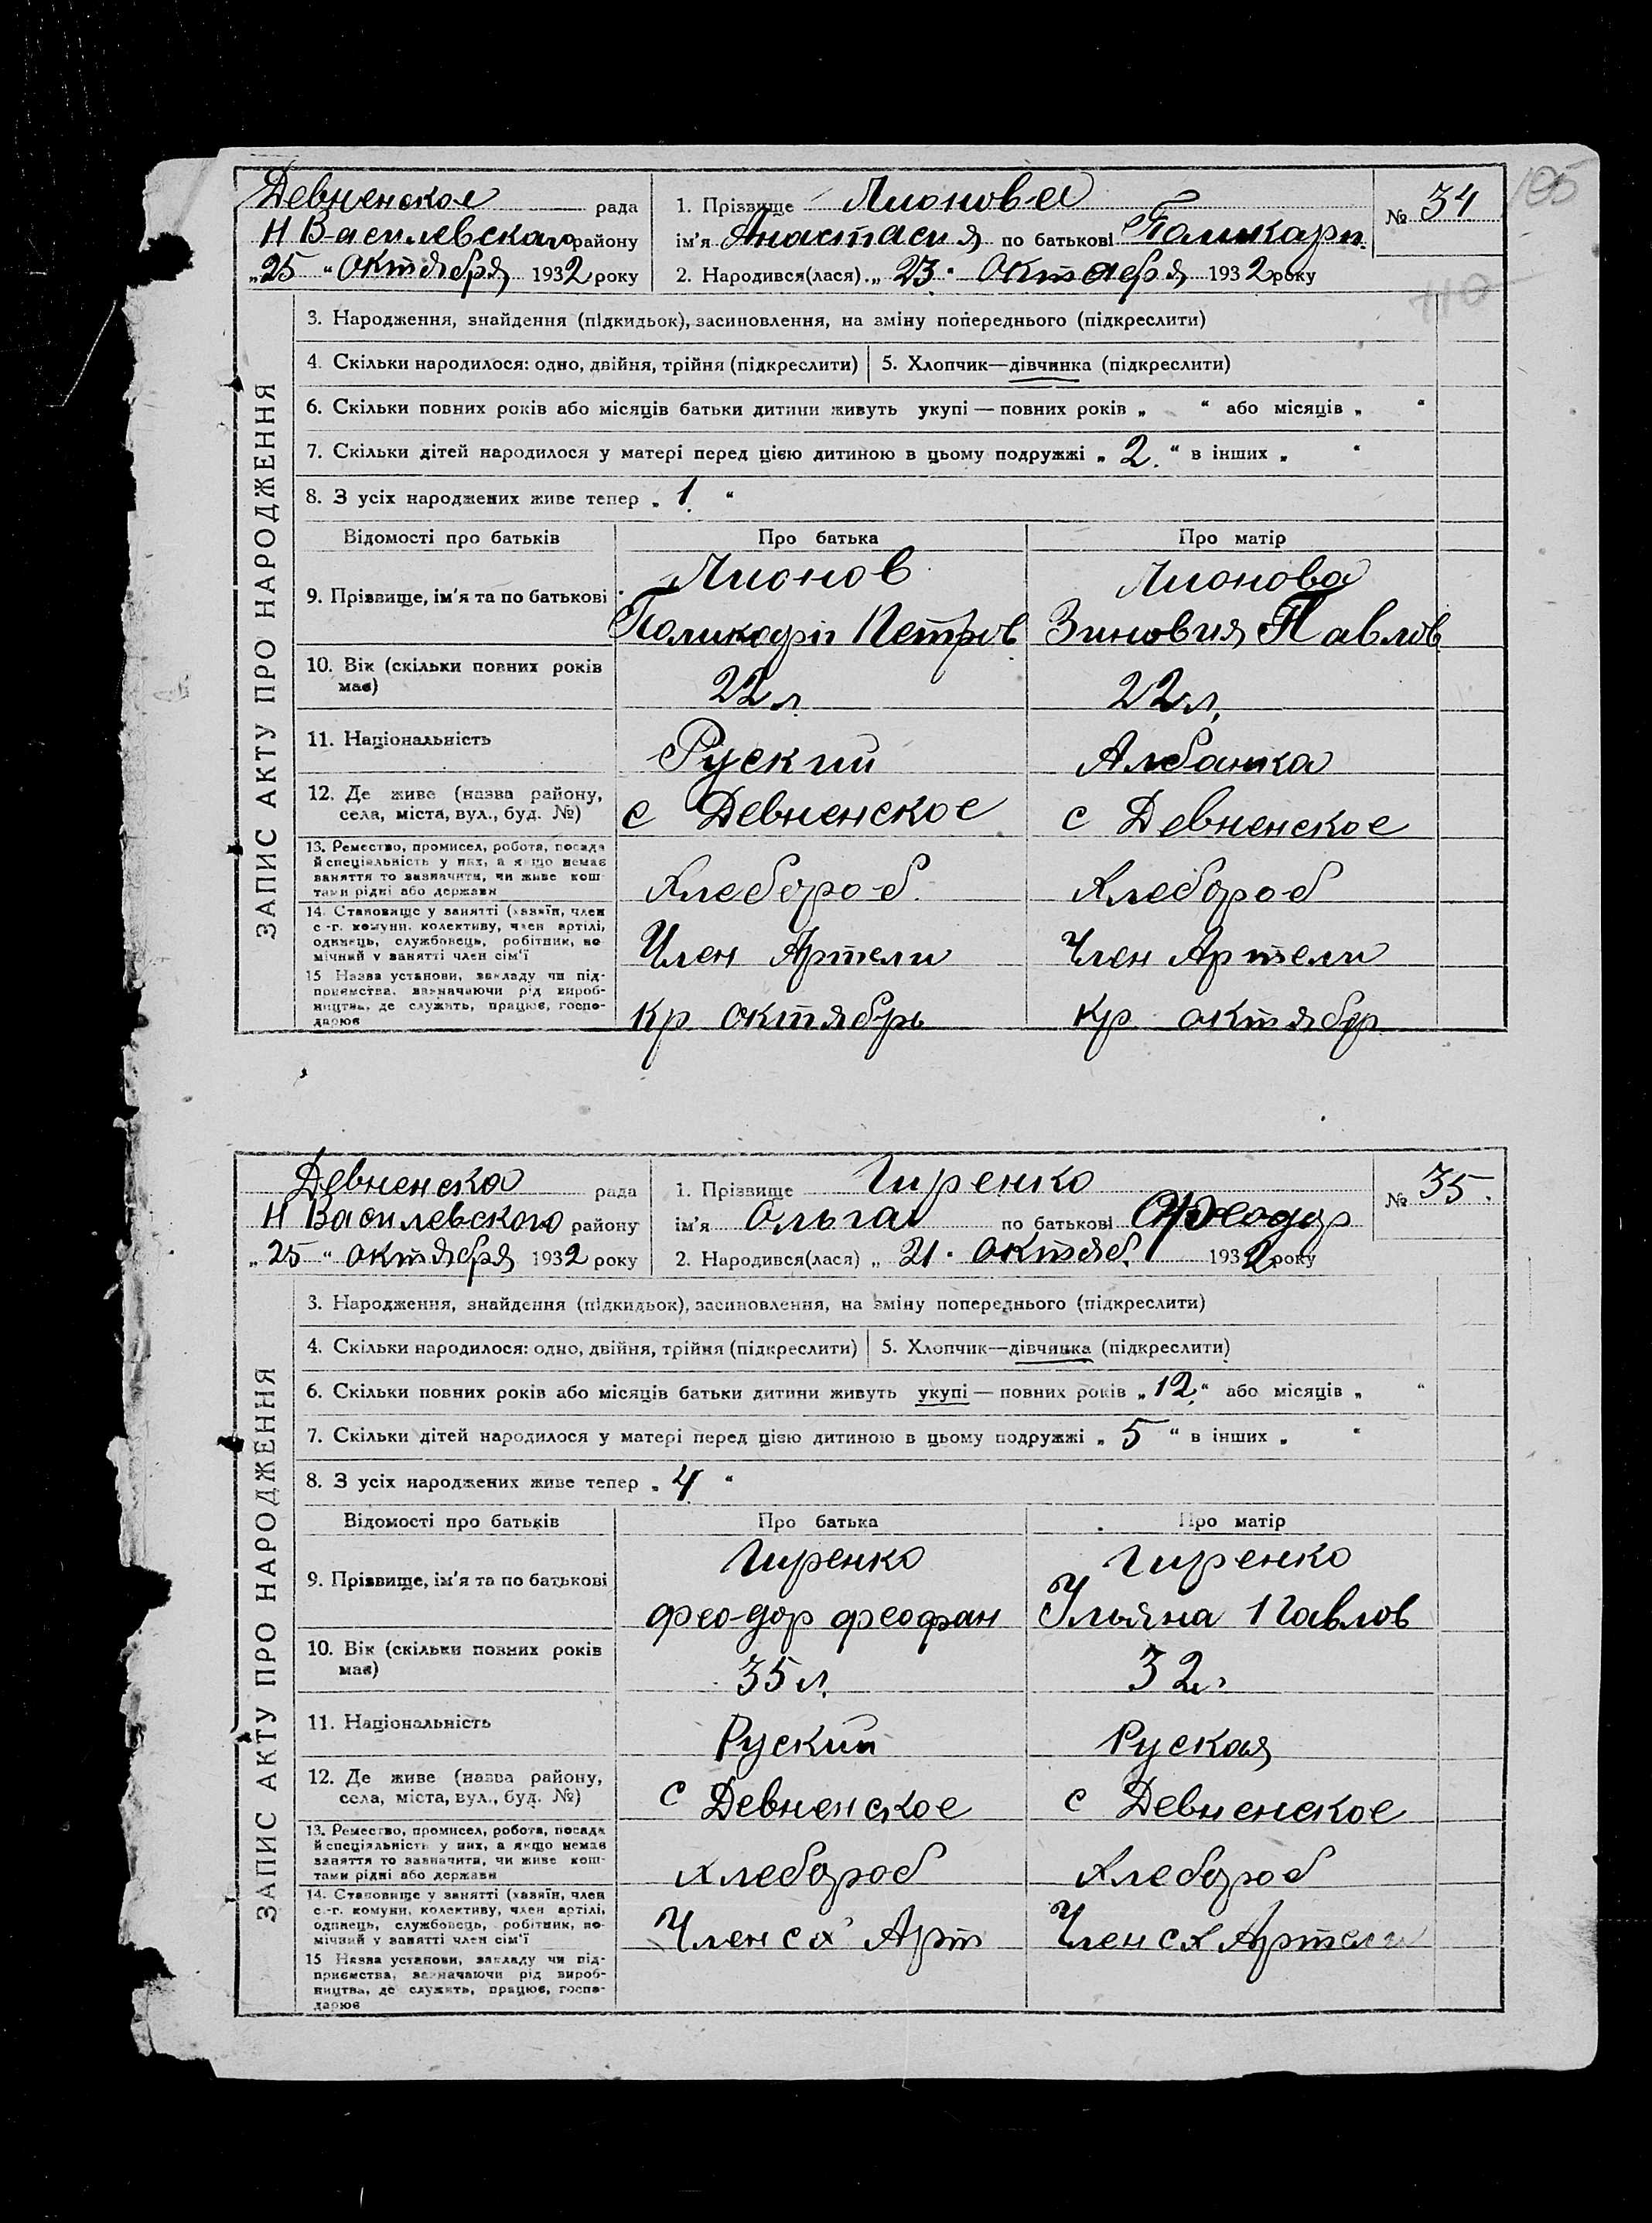 Девненская рада
Н Василевскаго району
„25“ Октября 1932 року
1. Прізвище Лионова
ім'я Анастасия по батькові Поликарп.
2. Народився(лася) „23“ Октября 1932 року
№ 34
105
110
ЗАПИС АКТУ ПРО НАРОДЖЕННЯ
3. Народження, знайдення (підкидьок), засиновлення, на зміну попереднього (підкреслити)
4. Скільки народилося: одно, двійня, трійня (підкреслити)
5. Хлопчик—дівчинка (підкреслити)
6. Скільки повних років або місяців батьки дитини живуть укупі — повних років „ “ або місяців „ “
7. Скільки дітей народилося у матері перед цією дитиною в цьому подружжі „2.“ в інших „ “
8. З усіх народжених живе тепер „1.“
Відомості про батьків Про батька Про матір
9. Прізвище, ім'я та по батькові
Лионов Лионова
Поликарп Петров Зиновия Павлов
10. Вік (скільки повних років має)
22 л. 22 л.
11. Національність
Руский Албанка
12. Де живе (назва району, села, міста, вул., буд. №)
с Девненское с Девненское
13. Ремество, промисел, робота, посада
й спеціяльність у них, а якщо немає
заняття то зазначити, чи живе кош-
тами рідні або держави
Хлебороб. Хлебороб
14. Становище у занятті (хазяїн, член
с.-г. комуни, колективу, член артілі,
одинець, службовець, робітник, по-
мічний у занятті член сім'ї
Член Артели Член Артели
15 Назва установи, закладу чи під-
приємства, зазначаючи рід вироб-
ництва, де служить, працює, госпо-
дарює
Кр октябрь Кр октябр
Девненска рада
Н Василевского району
„25“ октября 1932 року
1. Прізвище Гиренко
ім'я Ольга по батькові Феодор
2. Народився(лася) „21“ октяб. 1932 року
№ 35.
ЗАПИС АКТУ ПРО НАРОДЖЕННЯ
3. Народження, знайдення (підкидьок), засиновлення, на зміну попереднього (підкреслити)
4. Скільки народилося: одно, двійня, трійня (підкреслити)
5. Хлопчик—дівчинка (підкреслити)
6. Скільки повних років або місяців батьки дитини живуть укупі — повних років „12“ або місяців „ “
7. Скільки дітей народилося у матері перед цією дитиною в цьому подружжі „5“ в інших „ “
8. З усіх народжених живе тепер „4“
Відомості про батьків Про батька Про матір
9. Прізвище, ім'я та по батькові
Гиренко Гиренко
Феодор Феофан Ульяна Павлов
10. Вік (скільки повних років має)
35 л. 32 л.
11. Національність
Руский Руская
12. Де живе (назва району, села, міста, вул., буд. №)
с Девненское с Девненское
13. Ремество, промисел, робота, посада
й спеціяльність у них, а якщо немає
заняття то зазначити, чи живе кош-
тами рідні або держави
хлебороб Хлебороб
14. Становище у занятті (хазяїн, член
с.-г. комуни, колективу, член артілі,
одинець, службовець, робітник, по-
мічний у занятті член сім'ї
Член сх Арт Член сх Артели
15 Назва установи, закладу чи під-
приємства, зазначаючи рід вироб-
ництва, де служить, працює, госпо-
дарює